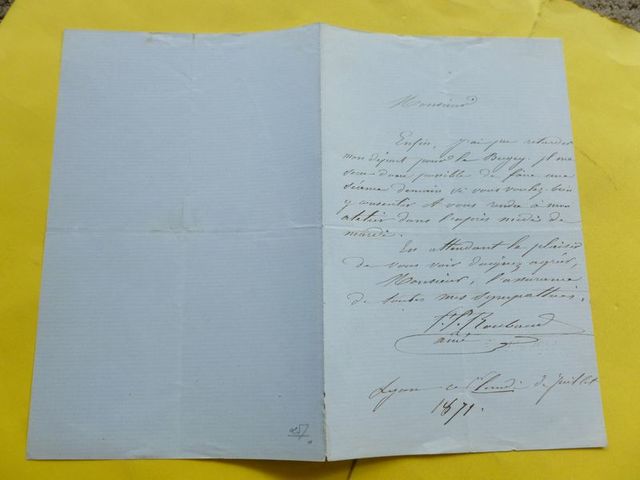 Monsieur
Enfin, j'ai pu retarder
mon départ pour le Bugey. Il me
sera donc possible de faire une
séance demain si vous voulez bien
y consentir et vous rendre à mon
atelier dans l'après midi de
mardi.
En attendant le plaisir
de vous voir agréer,
Monsieur, l'assurance
de toutes mes sympathies,
F. Roubaud
aîné
Lyon ce 1er lundi de Juillet
1871.